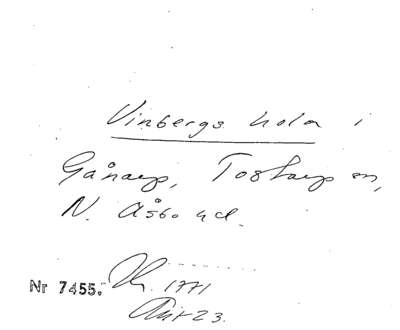 Vinbergs hola i
Gånarp, Tostarp sn,
N. Åsbo hd.
Nr 7455. 1771